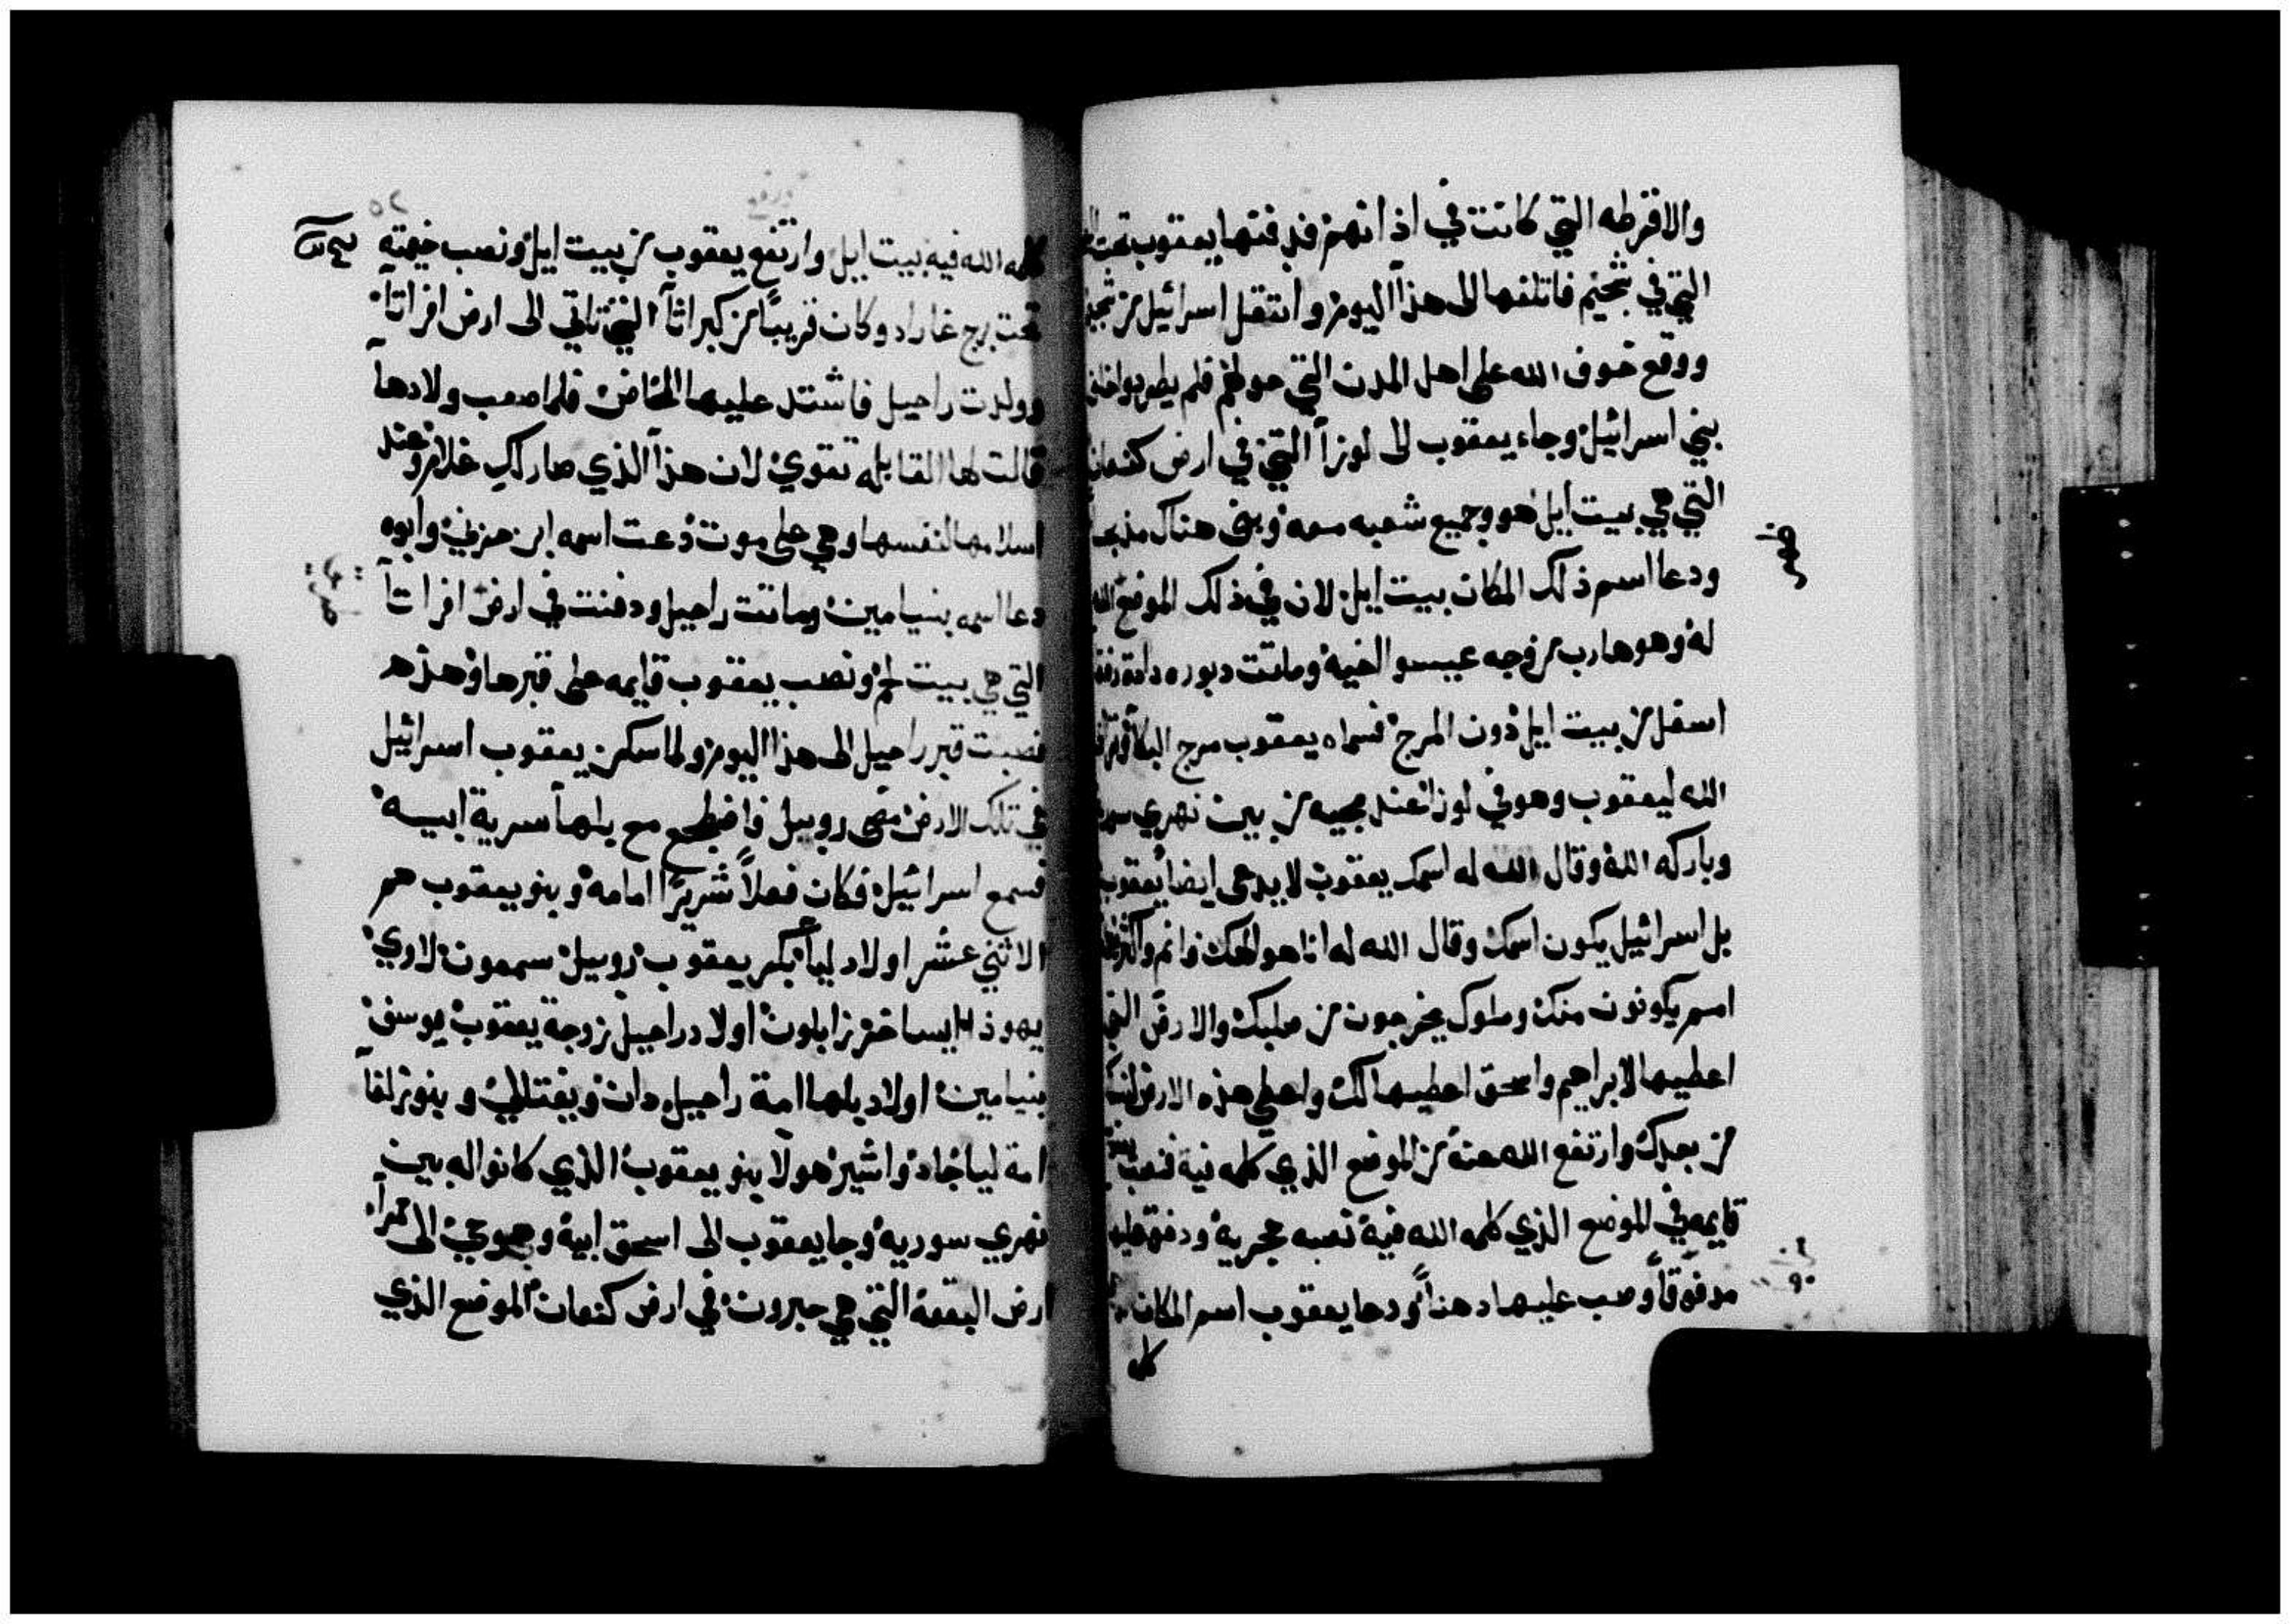 والاقرطه التي كانت في اذانهم فدفنها يعقوب تحت
التي في شخيم فاتلفها الى هذا اليوم وانتقل اسرائيل من
ووقع خوف الله على اهل المدن التي حولهم فلم يطلبوا خلف
بني اسرائيل وجاء يعقوب الى لوزا التي في ارض كنعان
التي هي بيت ايل هو وجميع شعبه معه وبنى هناك مذبحا
ودعا اسم ذلك المكان بيت ايل لان في ذلك الموضع
له وهو هارب من وجه عيسو اخيه وماتت دبوره داية
اسفل من بيت ايل دون المرج فسماه يعقوب مرج البكا
الله ليعقوب وهو في لوزا عند مجيه من بين نهري
وباركه الله وقال الله له اسمك يعقوب لا يدعى ايضا يعقوب
بل اسرائيل يكون اسمك وقال الله له انا هو الهك فانم واكثر
امم يكونون منك وملوك يخرجون من صلبك والارض التي
اعطيها لابراهيم واسحق اعطيها لك واعطي هذه الارض
من بعدك وارتفع الله عنه من الموضع الذي كلمه فيه فنصب
قايمه في الموضع الذي كلمه الله فيه نصبه حجرية ودفق عليها
مدفوقا وصب عليها دهنا ودعا يعقوب اسم المكان
كلمه
٥٢
كلمه الله فيه بيت ايل وارتفع يعقوب من بيت ايل ونصب خيمته
تحت برج غاراد وكان قريبا من كبراثا التي تاتي الى ارض افراتا
وولدت راحيل فاشتد عليها المخاض فلما صعب ولادها
قالت لها القابله تقوي لان هذا الذي صار لك غلام وعند
اسلامها لنفسها وهي على موت دعت اسمه ابن حزني وابوه
دعا اسمه بنيامين وماتت راحيل ودفنت في ارض افراتا
التي هي بيت لحم ونصب يعقوب قايمه على قبرها وهذه
نصبت قبر راحيل الى هذا اليوم ولما سكن يعقوب اسرائيل
في تلك الارض مضى روبيل فاضطجع مع بلها سرية ابيه
فسمع اسرائيل فكان فعلا شريرا امامه وبنو يعقوب هم
الاثني عشر اولاد ليا بكر يعقوب روبيل سمعون لاوي
يهوذا ايساخر زابلون اولاد راحيل زوجة يعقوب يوسف
بنيامين اولاد بلها امة راحيل دان ونفتالي وبنو زلفا
امة ليا جاد واشير هولا بنو يعقوب الذي كانوا له بين
نهري سوريه وجا يعقوب الى اسحق ابيه وهو حي الى ممرا
ارض البقعة التي هي حبرون في ارض كنعان الموضع الذي